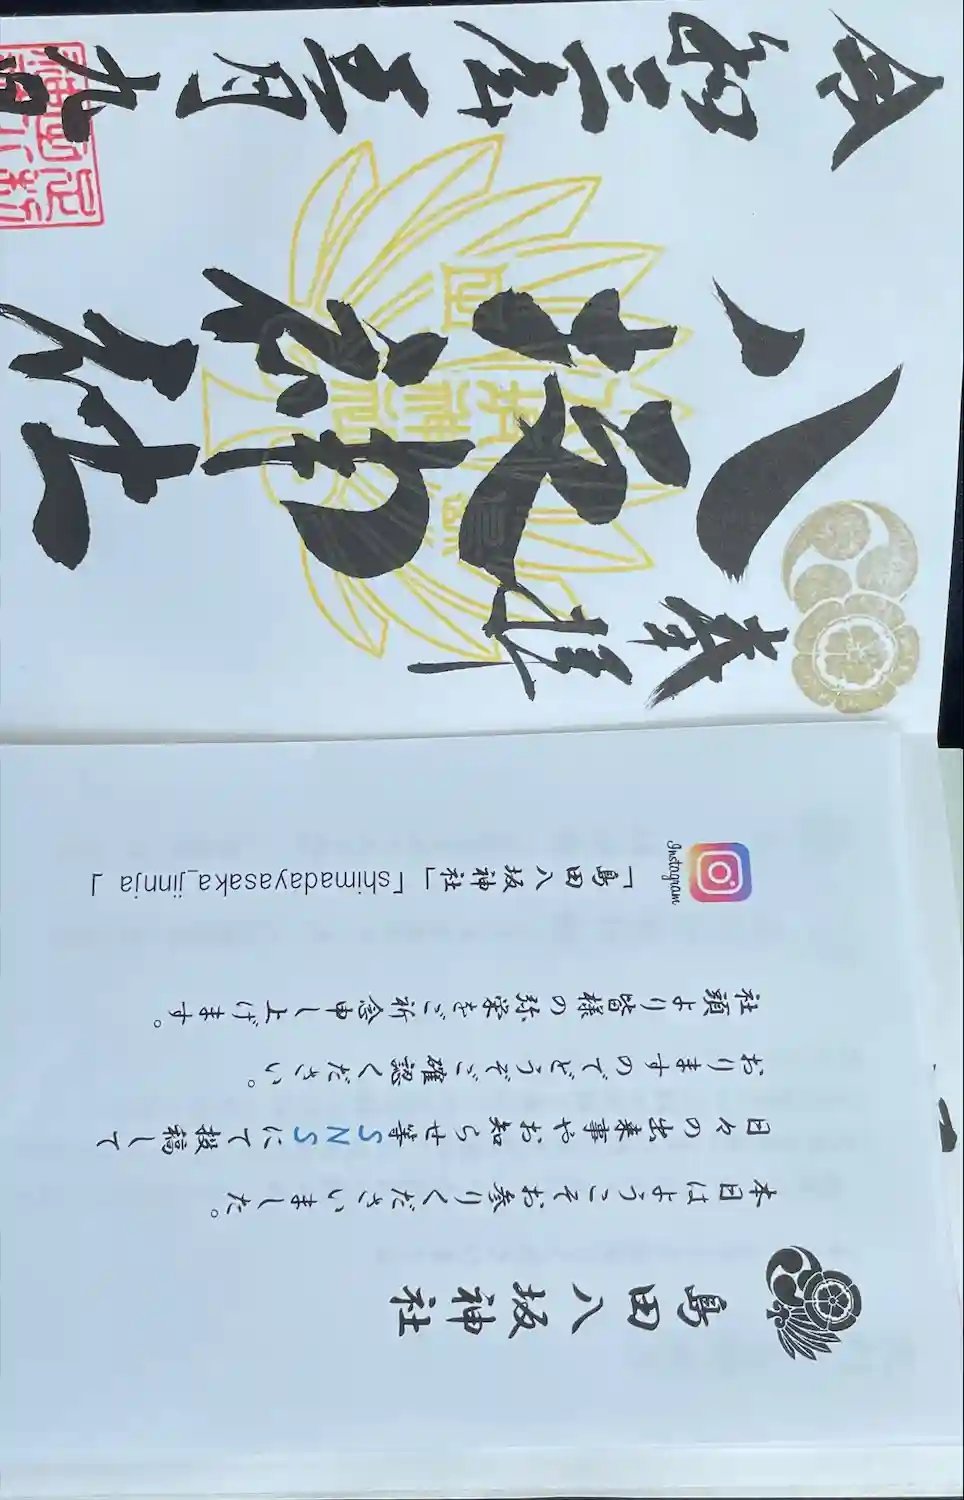 奉拝
八坂神社
令和
月九
島田八坂神社
本日はようこそお参りくださいました。
日々の出来事やお知らせ等SNSにて投稿して
おりますのでどうぞご確認ください。
社頭より皆様の弥栄をご祈念申し上げます。
Instagram
「島田八坂神社」「shimadayasaka_jinnja」